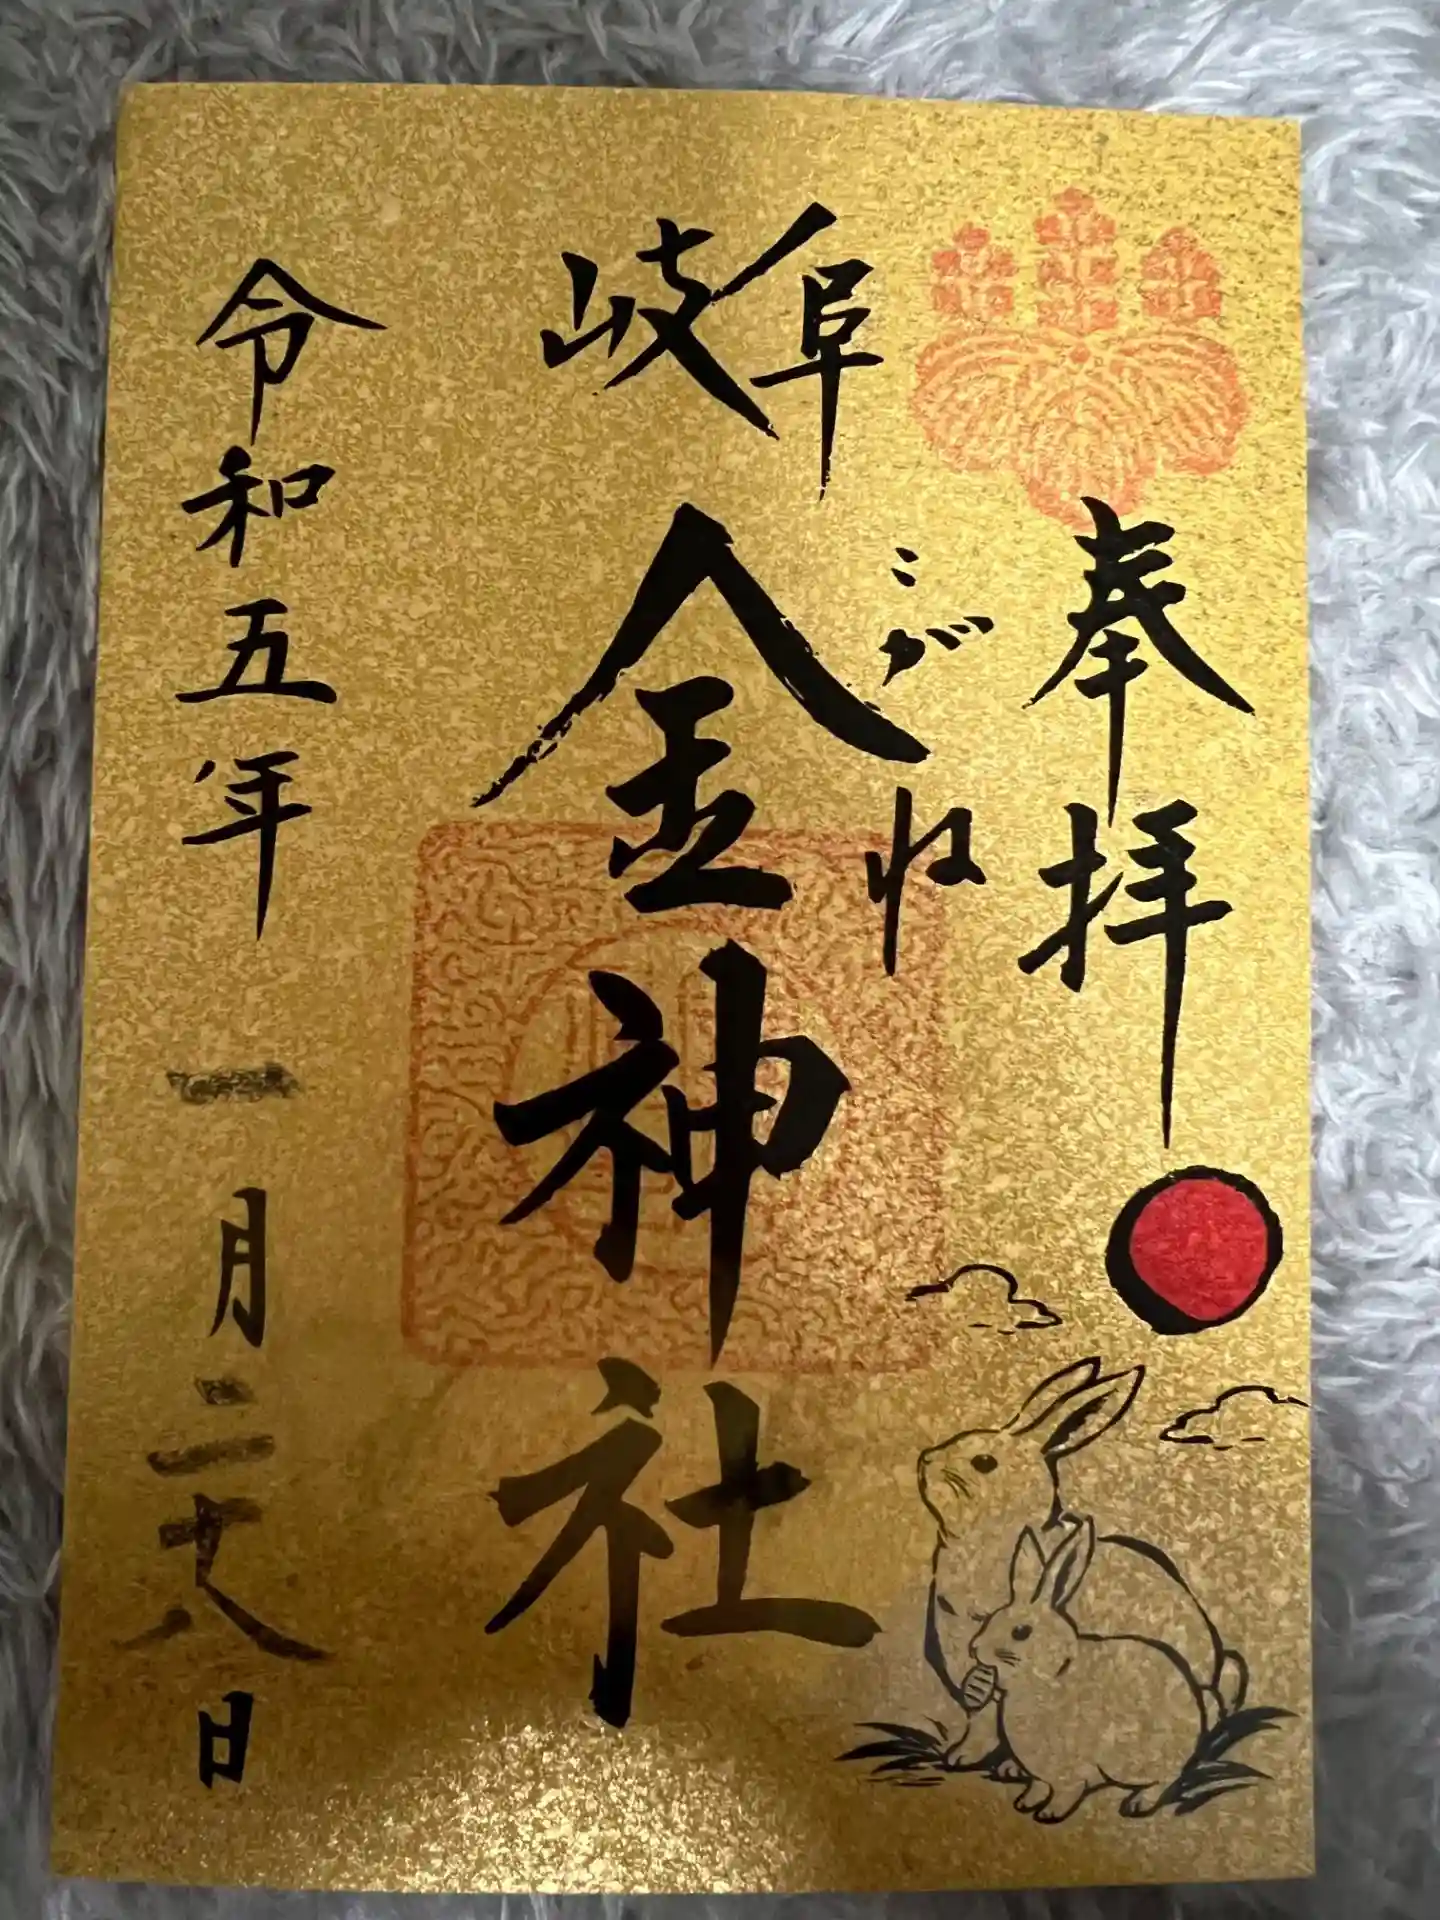 奉拝
岐阜
こがね
金神社
令和五年一月二十八日